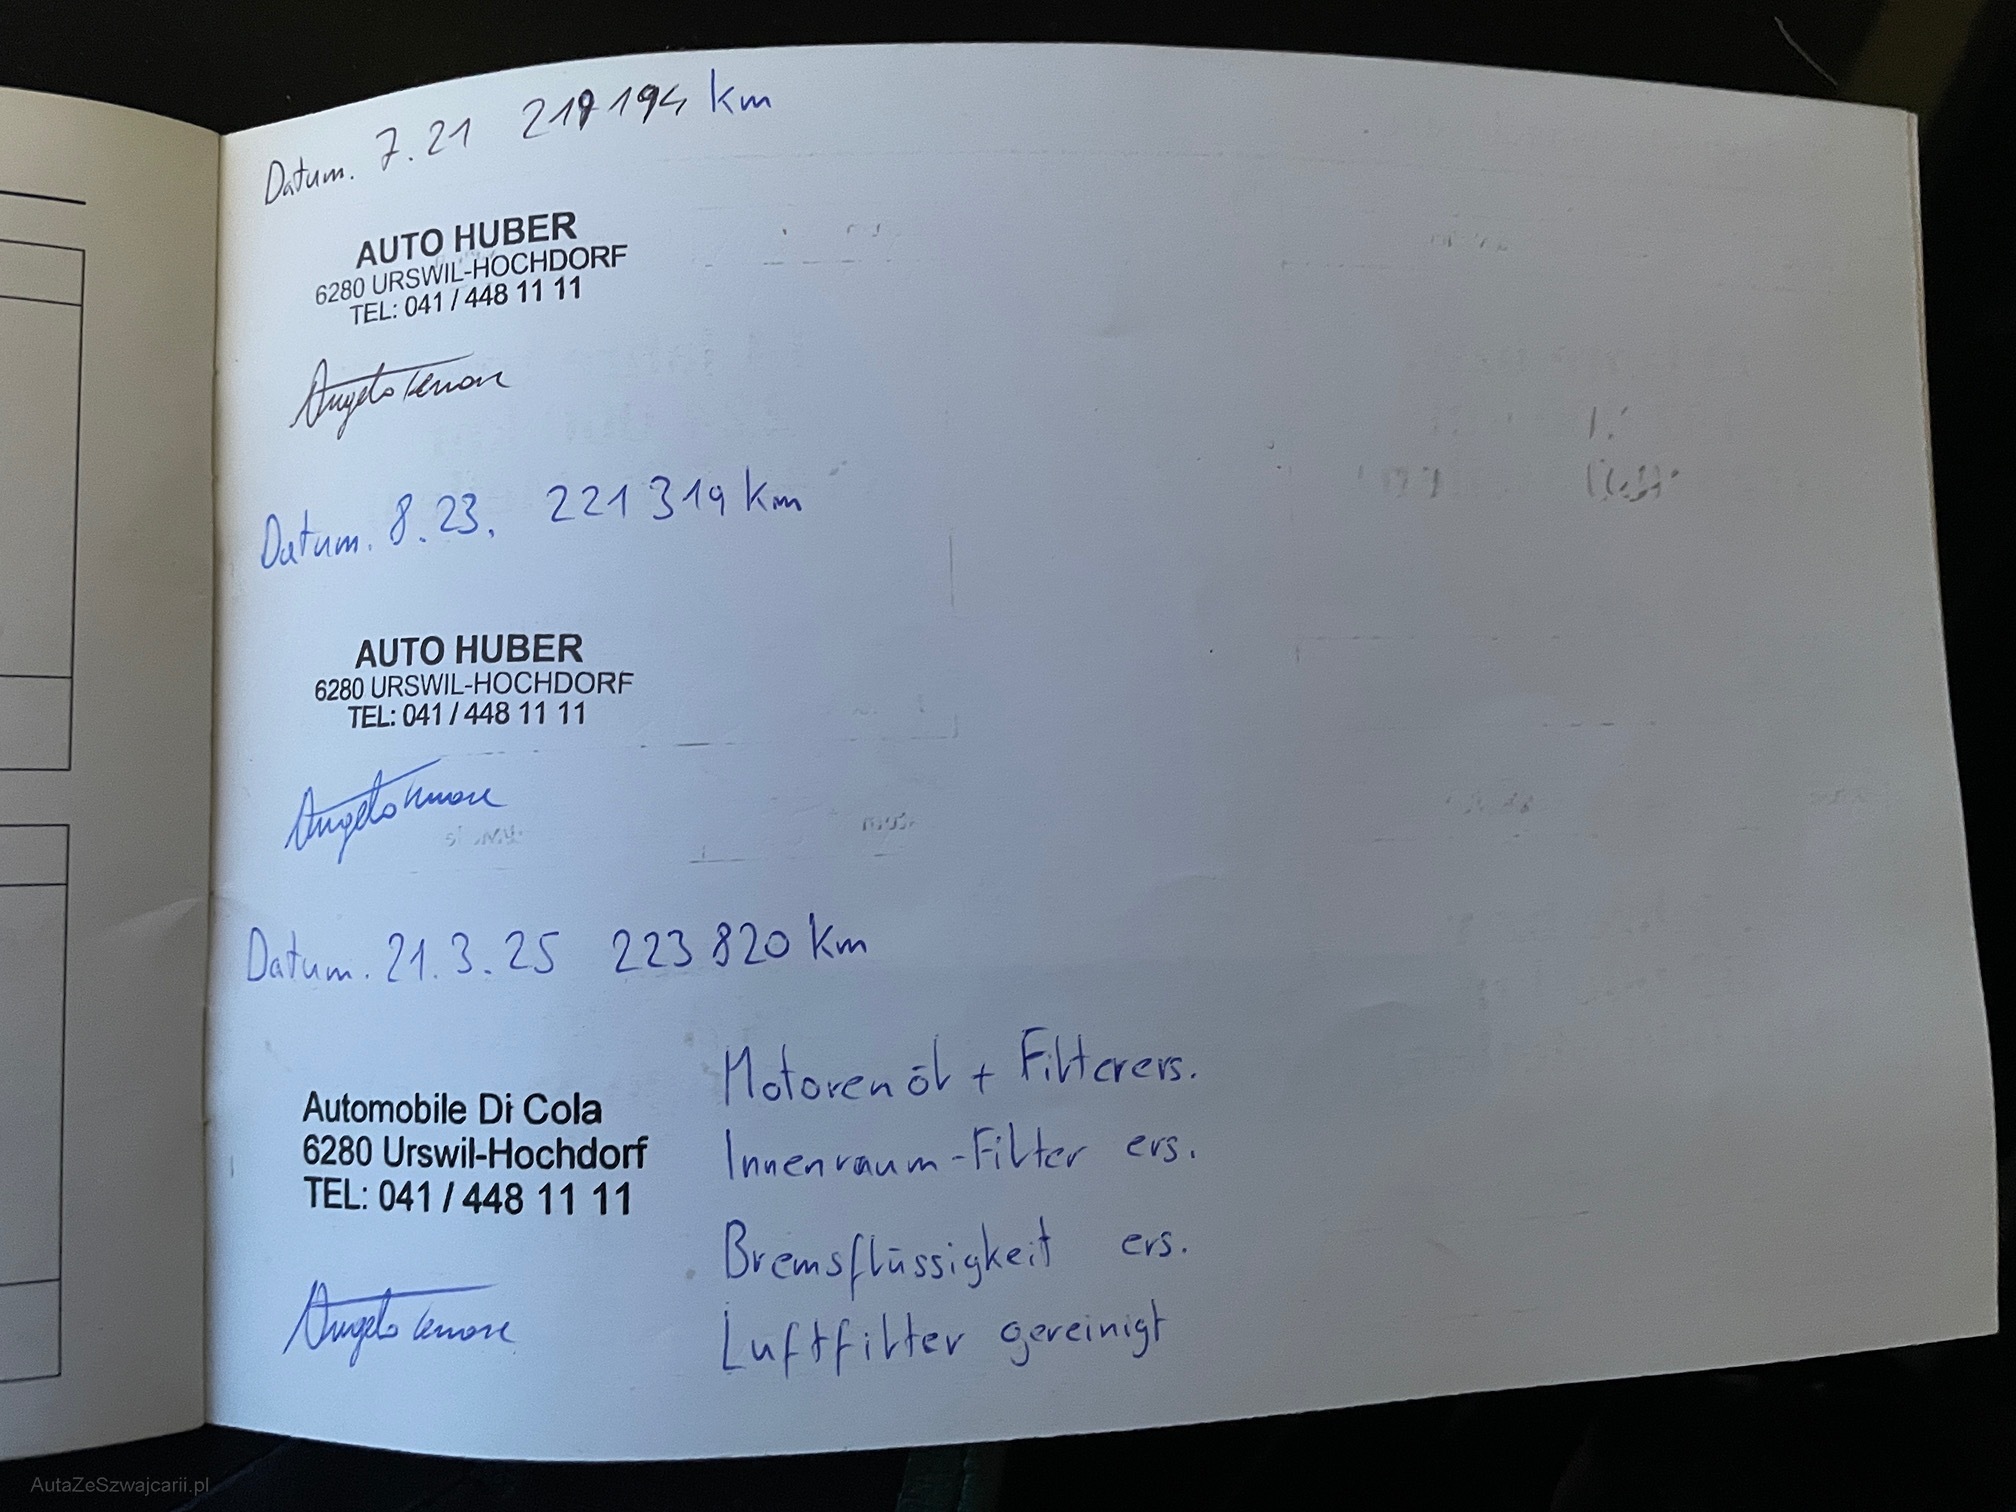 Datum. 7.21 219194 km
AUTO HUBER
6280 URSWIL-HOCHDORF
TEL: 041 / 448 11 11
Datum. 8.23. 221 319 km
AUTO HUBER
6280 URSWIL-HOCHDORF
TEL: 041 / 448 11 11
Datum. 21.3.25 223 820 km
Motorenöl + Filterers.
Automobile Di Cola
6280 Urswil-Hochdorf
TEL: 041 / 448 11 11
Innenraum-Filter ers.
Bremsflüssigkeit ers.
Luftfilter gereinigt
Angelo
AutaZeSzwajcarii.pl